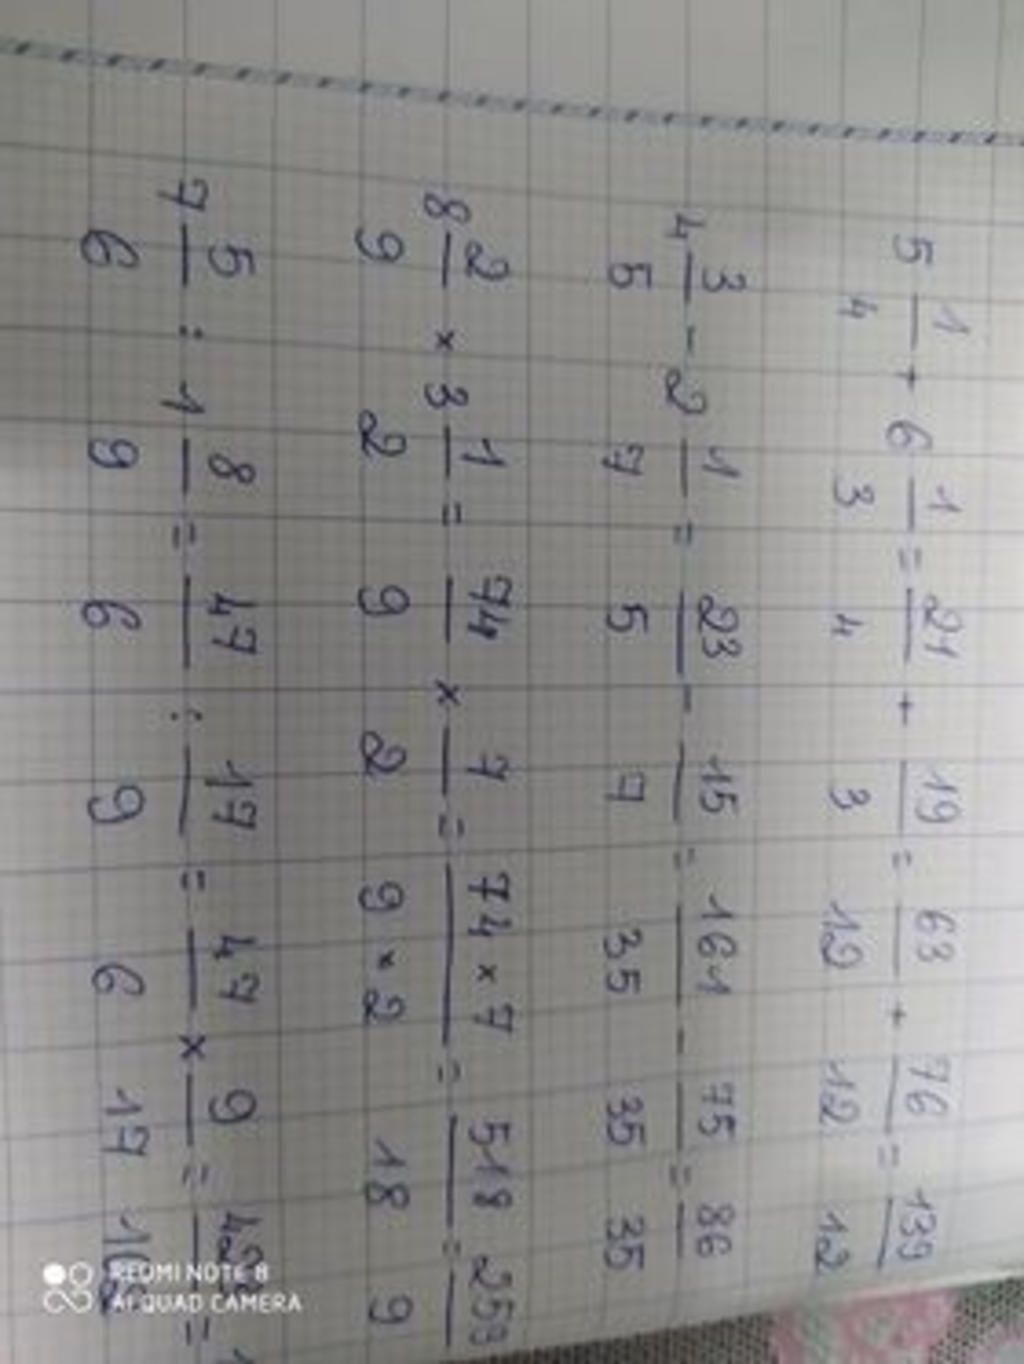 5 1/4 + 6 1/3 = 21/4 + 19/3 = 63/12 + 76/12 = 139/12
4 3/5 - 2 1/7 = 23/5 - 15/7 = 161/35 - 75/35 = 86/35
8 2/9 × 3 1/2 = 74/9 × 7/2 = 74 × 7/9 × 2 = 518/18 = 259/9
7 5/6 : 1 8/9 = 47/6 : 17/9 = 47/6 × 9/17 = 423/102 =
REDMI NOTE 8
AI QUAD CAMERA